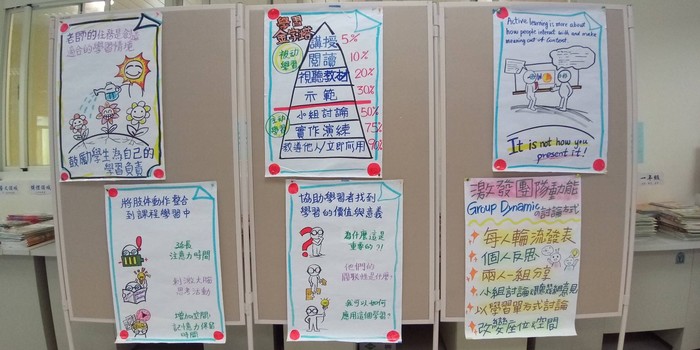 老師的任務是創造
適合的學習情境
鼓勵學生為自己的
學習負責
學習
金字塔
被動
學習
講授 5%
閱讀 10%
視聽教材 20%
示範 30%
主動
學習
小組討論 50%
實作演練 75%
教導他人/立即應用 90%
Active learning is more about
how people interact with and make
meaning out of content.
It is not how you
present it!
將肢体動作整合
到課程學習中
延長
注意力時間
刺激大腦
思考活動
增加空間
記憶力保留
時間
協助學習者找到
學習的價值與意義
為什麼這是
重要的?!
他們的
關聯性是什麼?
我可以如何
應用這個學習?
激發團隊動能
Group Dynamic的討論方式
每人輪流發表
個人反思
兩人一組分享
小組討論
以學習單方式討論
改變座位&空間
一年級